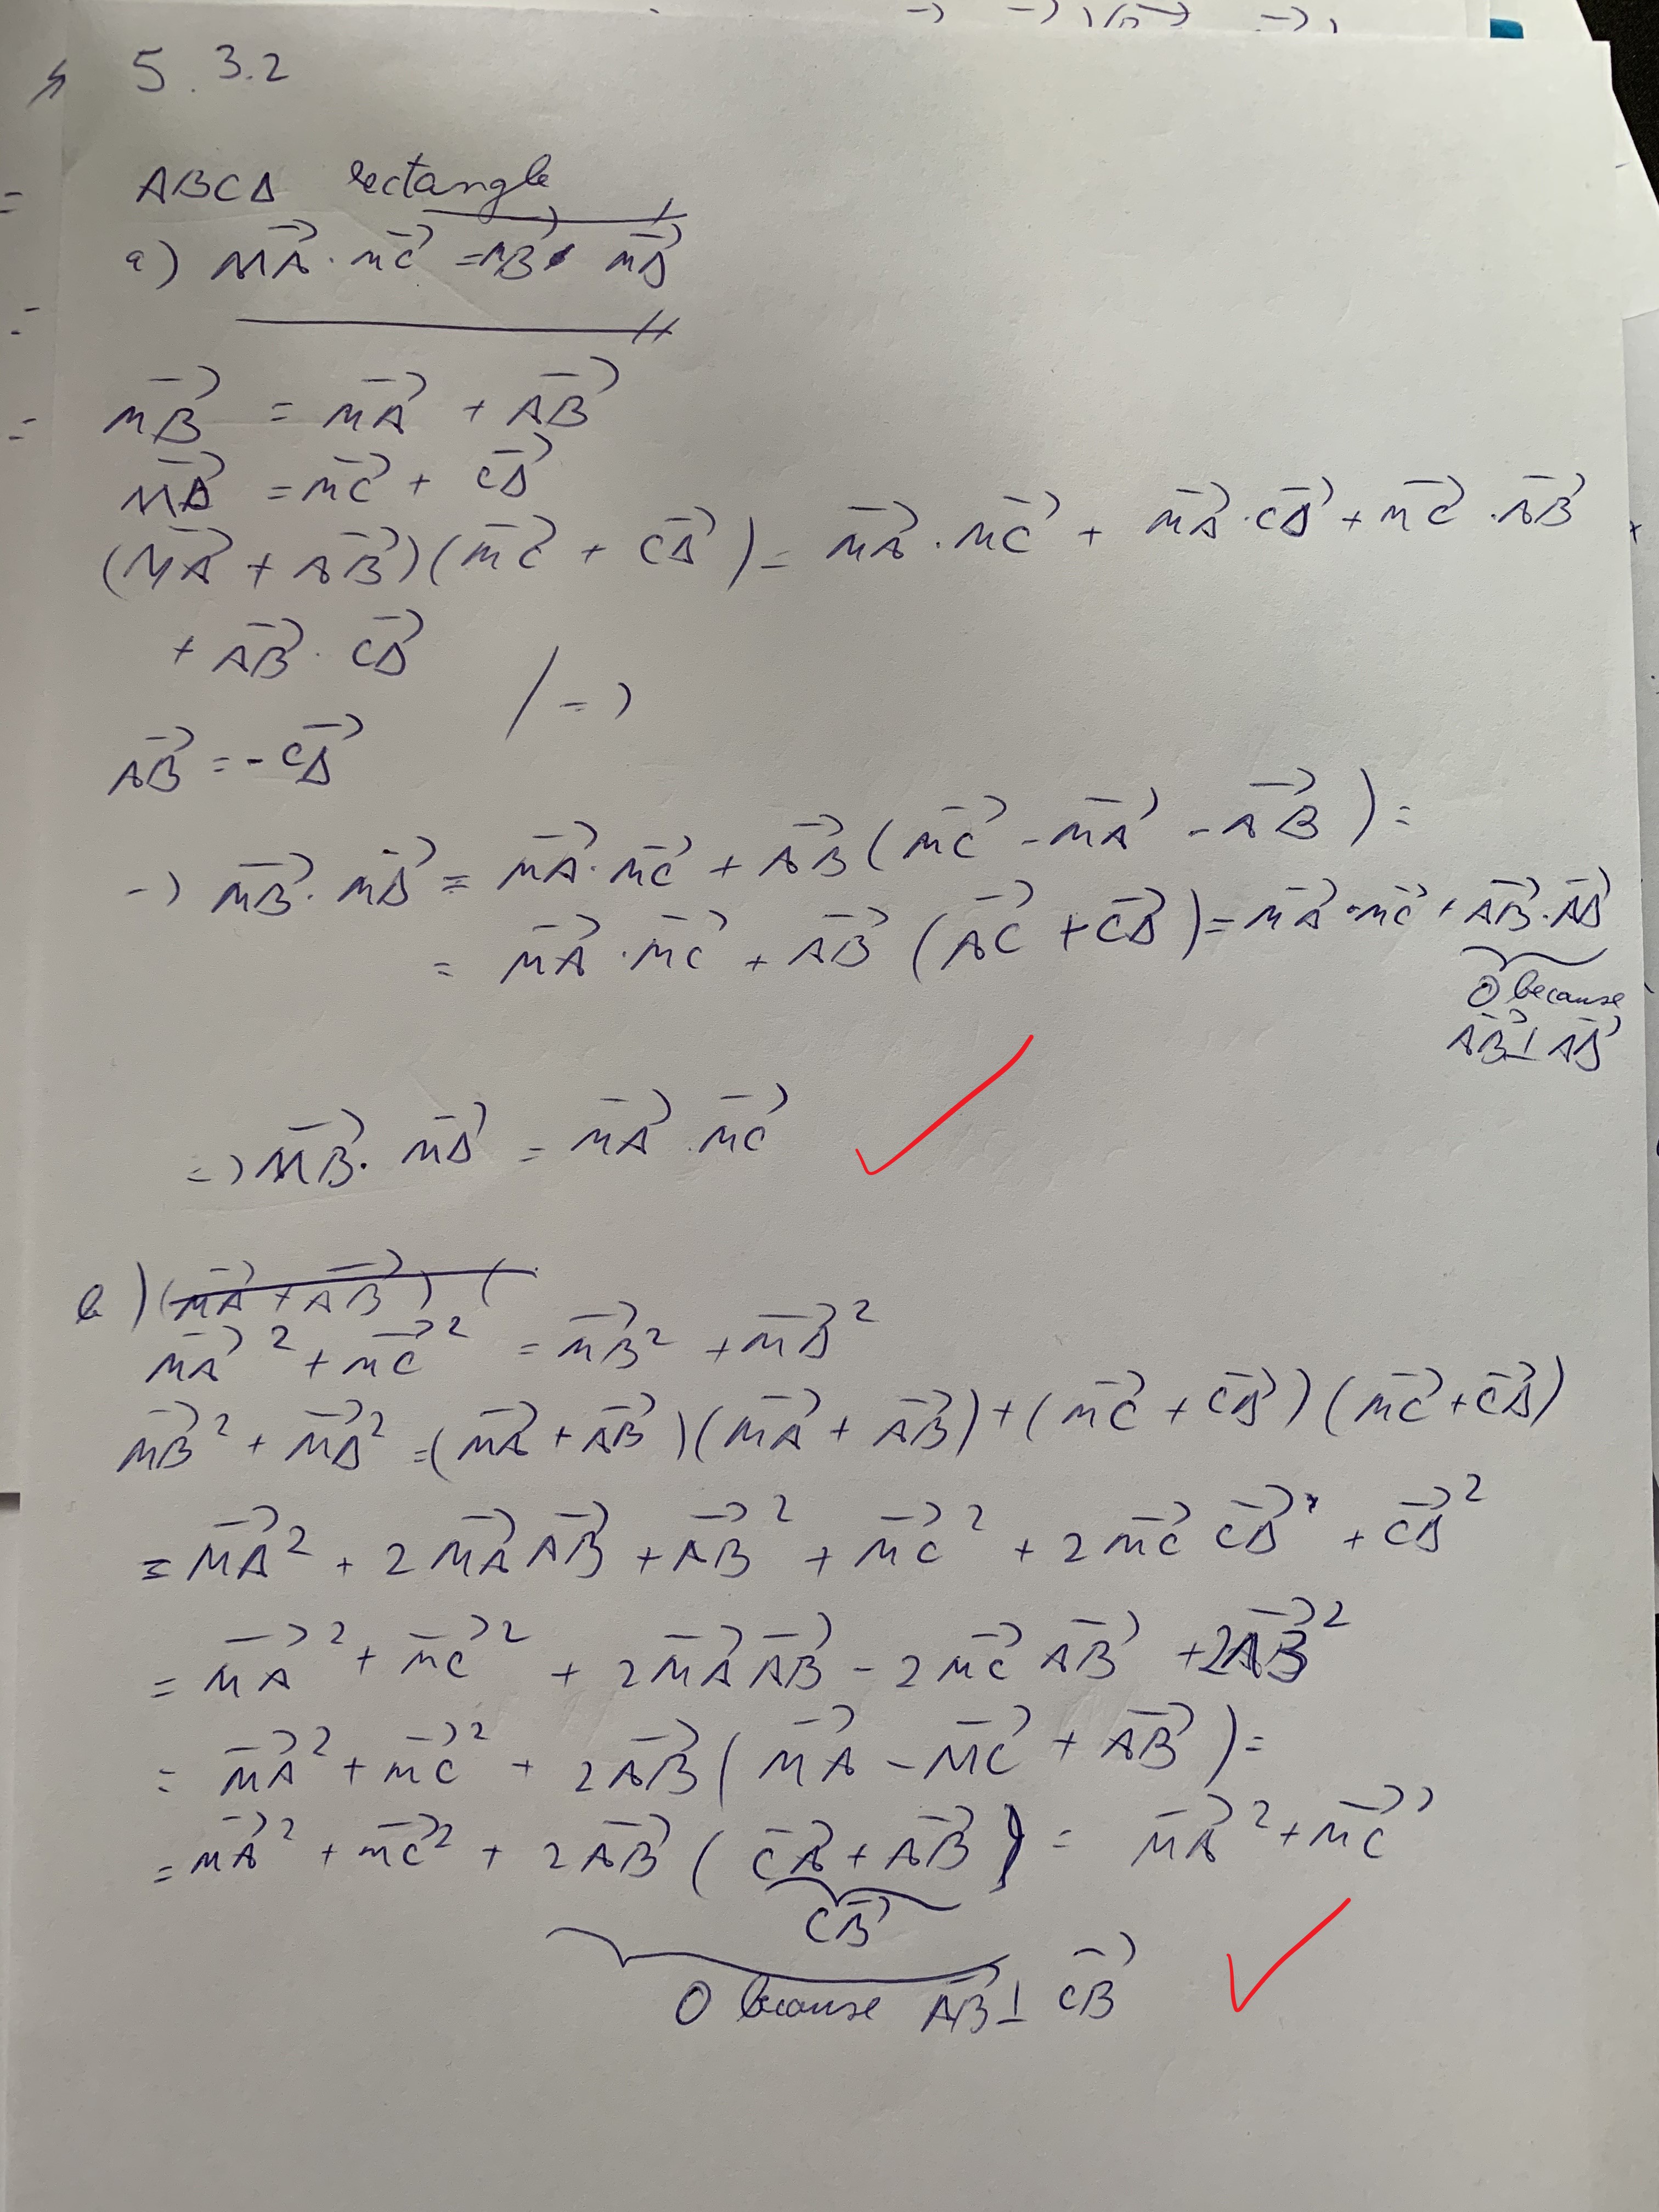 5.3.2
ABCΔ rectangle
a) \overrightarrow{MA} · \overrightarrow{MC} = \overrightarrow{MB} · \overrightarrow{MΔ}
\overrightarrow{MB} = \overrightarrow{MA} + \overrightarrow{AB}
\overrightarrow{MΔ} = \overrightarrow{MC} + \overrightarrow{CΔ}
(\overrightarrow{MA} + \overrightarrow{AB})(\overrightarrow{MC} + \overrightarrow{CΔ}) = \overrightarrow{MA} · \overrightarrow{MC} + \overrightarrow{MA} · \overrightarrow{CΔ} + \overrightarrow{MC} · \overrightarrow{AB} +
+ \overrightarrow{AB} · \overrightarrow{CΔ}
/ =>
\overrightarrow{AB} = - \overrightarrow{CΔ}
=> \overrightarrow{MB} · \overrightarrow{MΔ} = \overrightarrow{MA} · \overrightarrow{MC} + \overrightarrow{AB} (\overrightarrow{MC} - \overrightarrow{MA} - \overrightarrow{AB}) =
= \overrightarrow{MA} · \overrightarrow{MC} + \overrightarrow{AB} (\overrightarrow{AC} + \overrightarrow{CΔ}) = \overrightarrow{MA} · \overrightarrow{MC} + \overrightarrow{AB} · \overrightarrow{AΔ}
0 because
\overrightarrow{AB} ⊥ \overrightarrow{AΔ}
=> \overrightarrow{MB} · \overrightarrow{MΔ} = \overrightarrow{MA} · \overrightarrow{MC}
b) (\overrightarrow{MA} + \overrightarrow{AB}) (
\overrightarrow{MA}² + \overrightarrow{MC}² = \overrightarrow{MB}² + \overrightarrow{MΔ}²
\overrightarrow{MB}² + \overrightarrow{MΔ}² = (\overrightarrow{MA} + \overrightarrow{AB})(\overrightarrow{MA} + \overrightarrow{AB}) + (\overrightarrow{MC} + \overrightarrow{CΔ})(\overrightarrow{MC} + \overrightarrow{CΔ})
= \overrightarrow{MA}² + 2\overrightarrow{MA} \overrightarrow{AB} + \overrightarrow{AB}² + \overrightarrow{MC}² + 2\overrightarrow{MC} \overrightarrow{CΔ} + \overrightarrow{CΔ}²
= \overrightarrow{MA}² + \overrightarrow{MC}² + 2\overrightarrow{MA} \overrightarrow{AB} - 2\overrightarrow{MC} \overrightarrow{AB} + 2\overrightarrow{AB}²
= \overrightarrow{MA}² + \overrightarrow{MC}² + 2\overrightarrow{AB} (\overrightarrow{MA} - \overrightarrow{MC} + \overrightarrow{AB}) =
= \overrightarrow{MA}² + \overrightarrow{MC}² + 2\overrightarrow{AB} (\overrightarrow{CA} + \overrightarrow{AB}) = \overrightarrow{MA}² + \overrightarrow{MC}²
\overrightarrow{CB}
0 because \overrightarrow{AB} ⊥ \overrightarrow{CB}